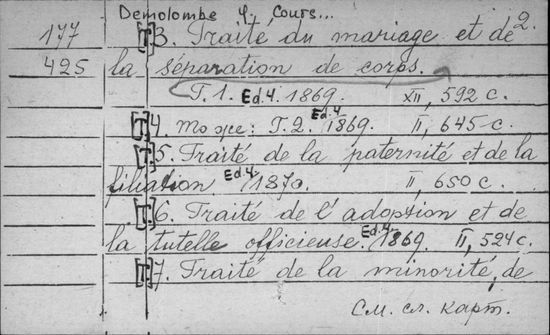 Demolombe 4, Cours... 2.
177 [T.]3. Traité du mariage et de
425 la séparation de corps.
T. 1. Ed. 4. 1869. XII, 592 с.
[T.]4. То же: T. 2. Ed. 4. 1869. II, 645 с.
[T.]5. Traité de la paternité et de la
filiation Ed. 4. 1870. II, 650 с.
[T.]6. Traité de l'adoption et de
la tutelle officieuse. Ed. 4. 1869. II, 524 с.
[T.]7. Traité de la minorité, de
См. сл. карт.